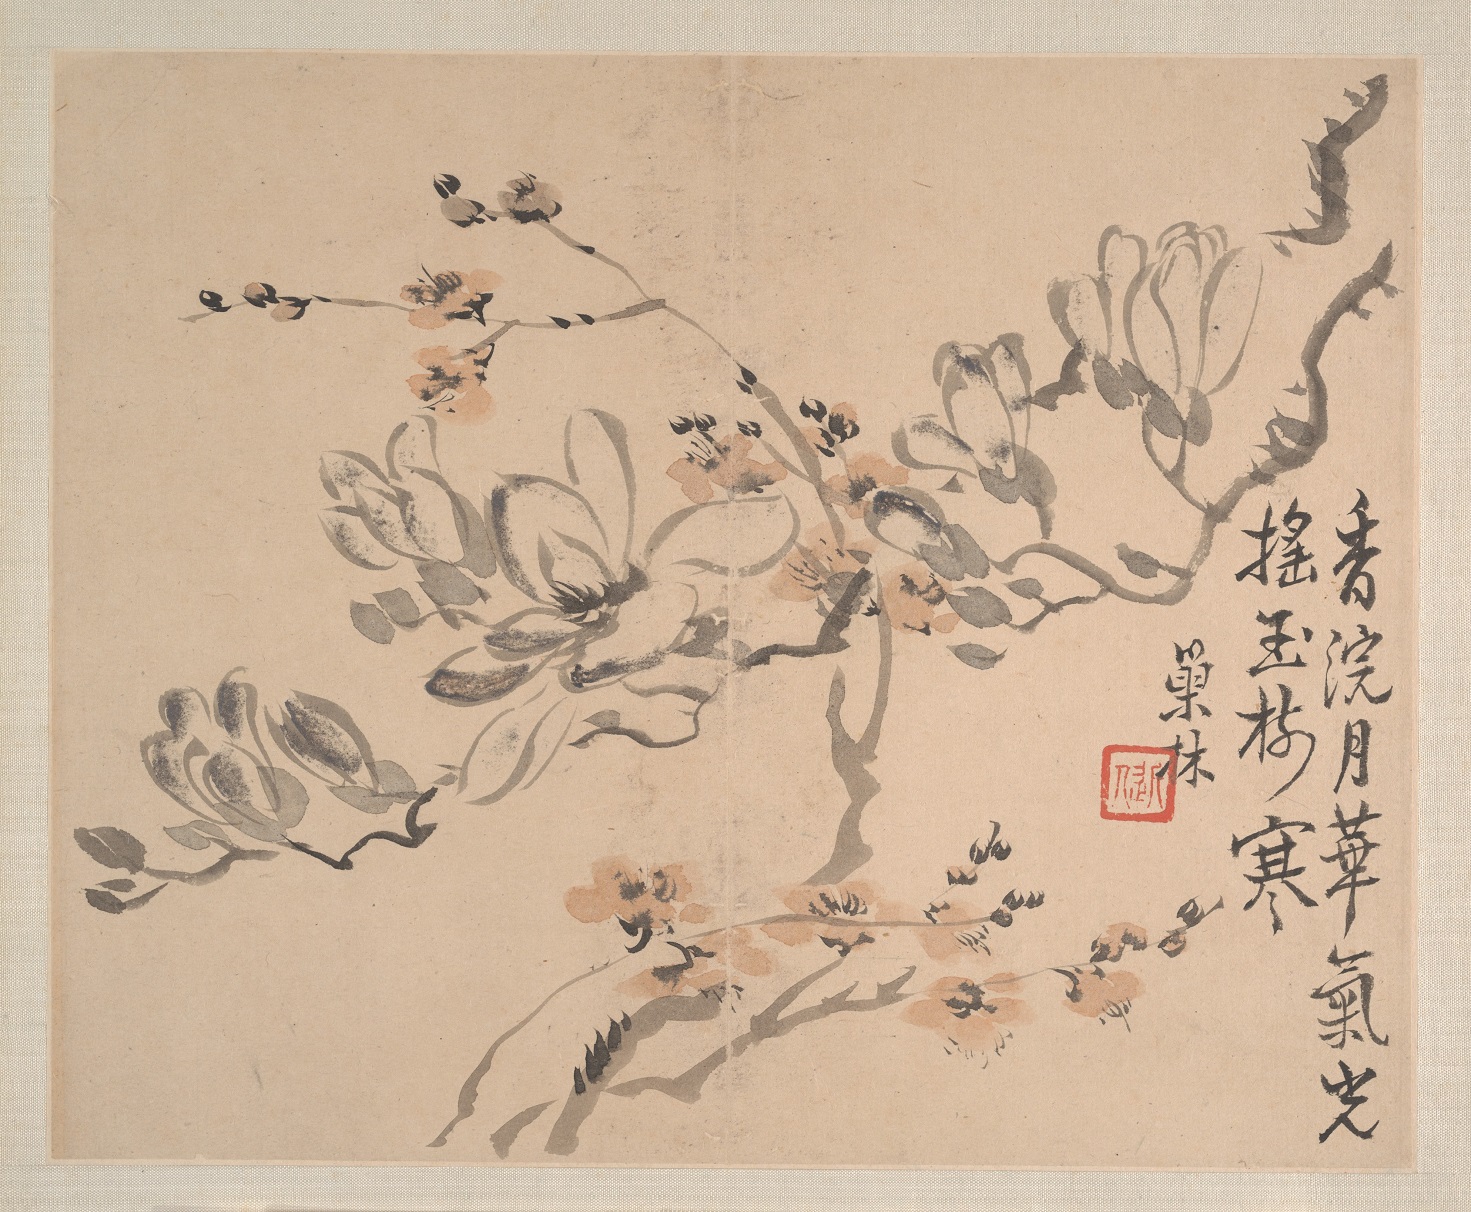 香浣月華氣光
搖玉樹寒
巢林